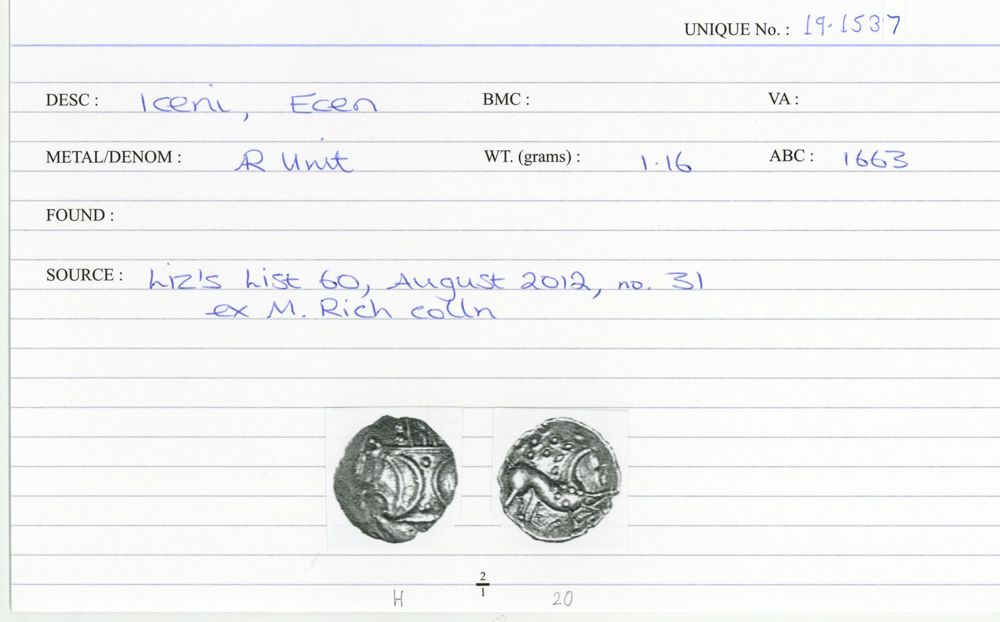 UNIQUE No. : 19-1537
DESC : Iceni, Ecen BMC : VA :
METAL/DENOM : AR Unit WT. (grams) : 1.16 ABC : 1663
FOUND :
SOURCE : Liz's List 60, August 2012, no. 31
ex M. Rich colln
2
1
H 20